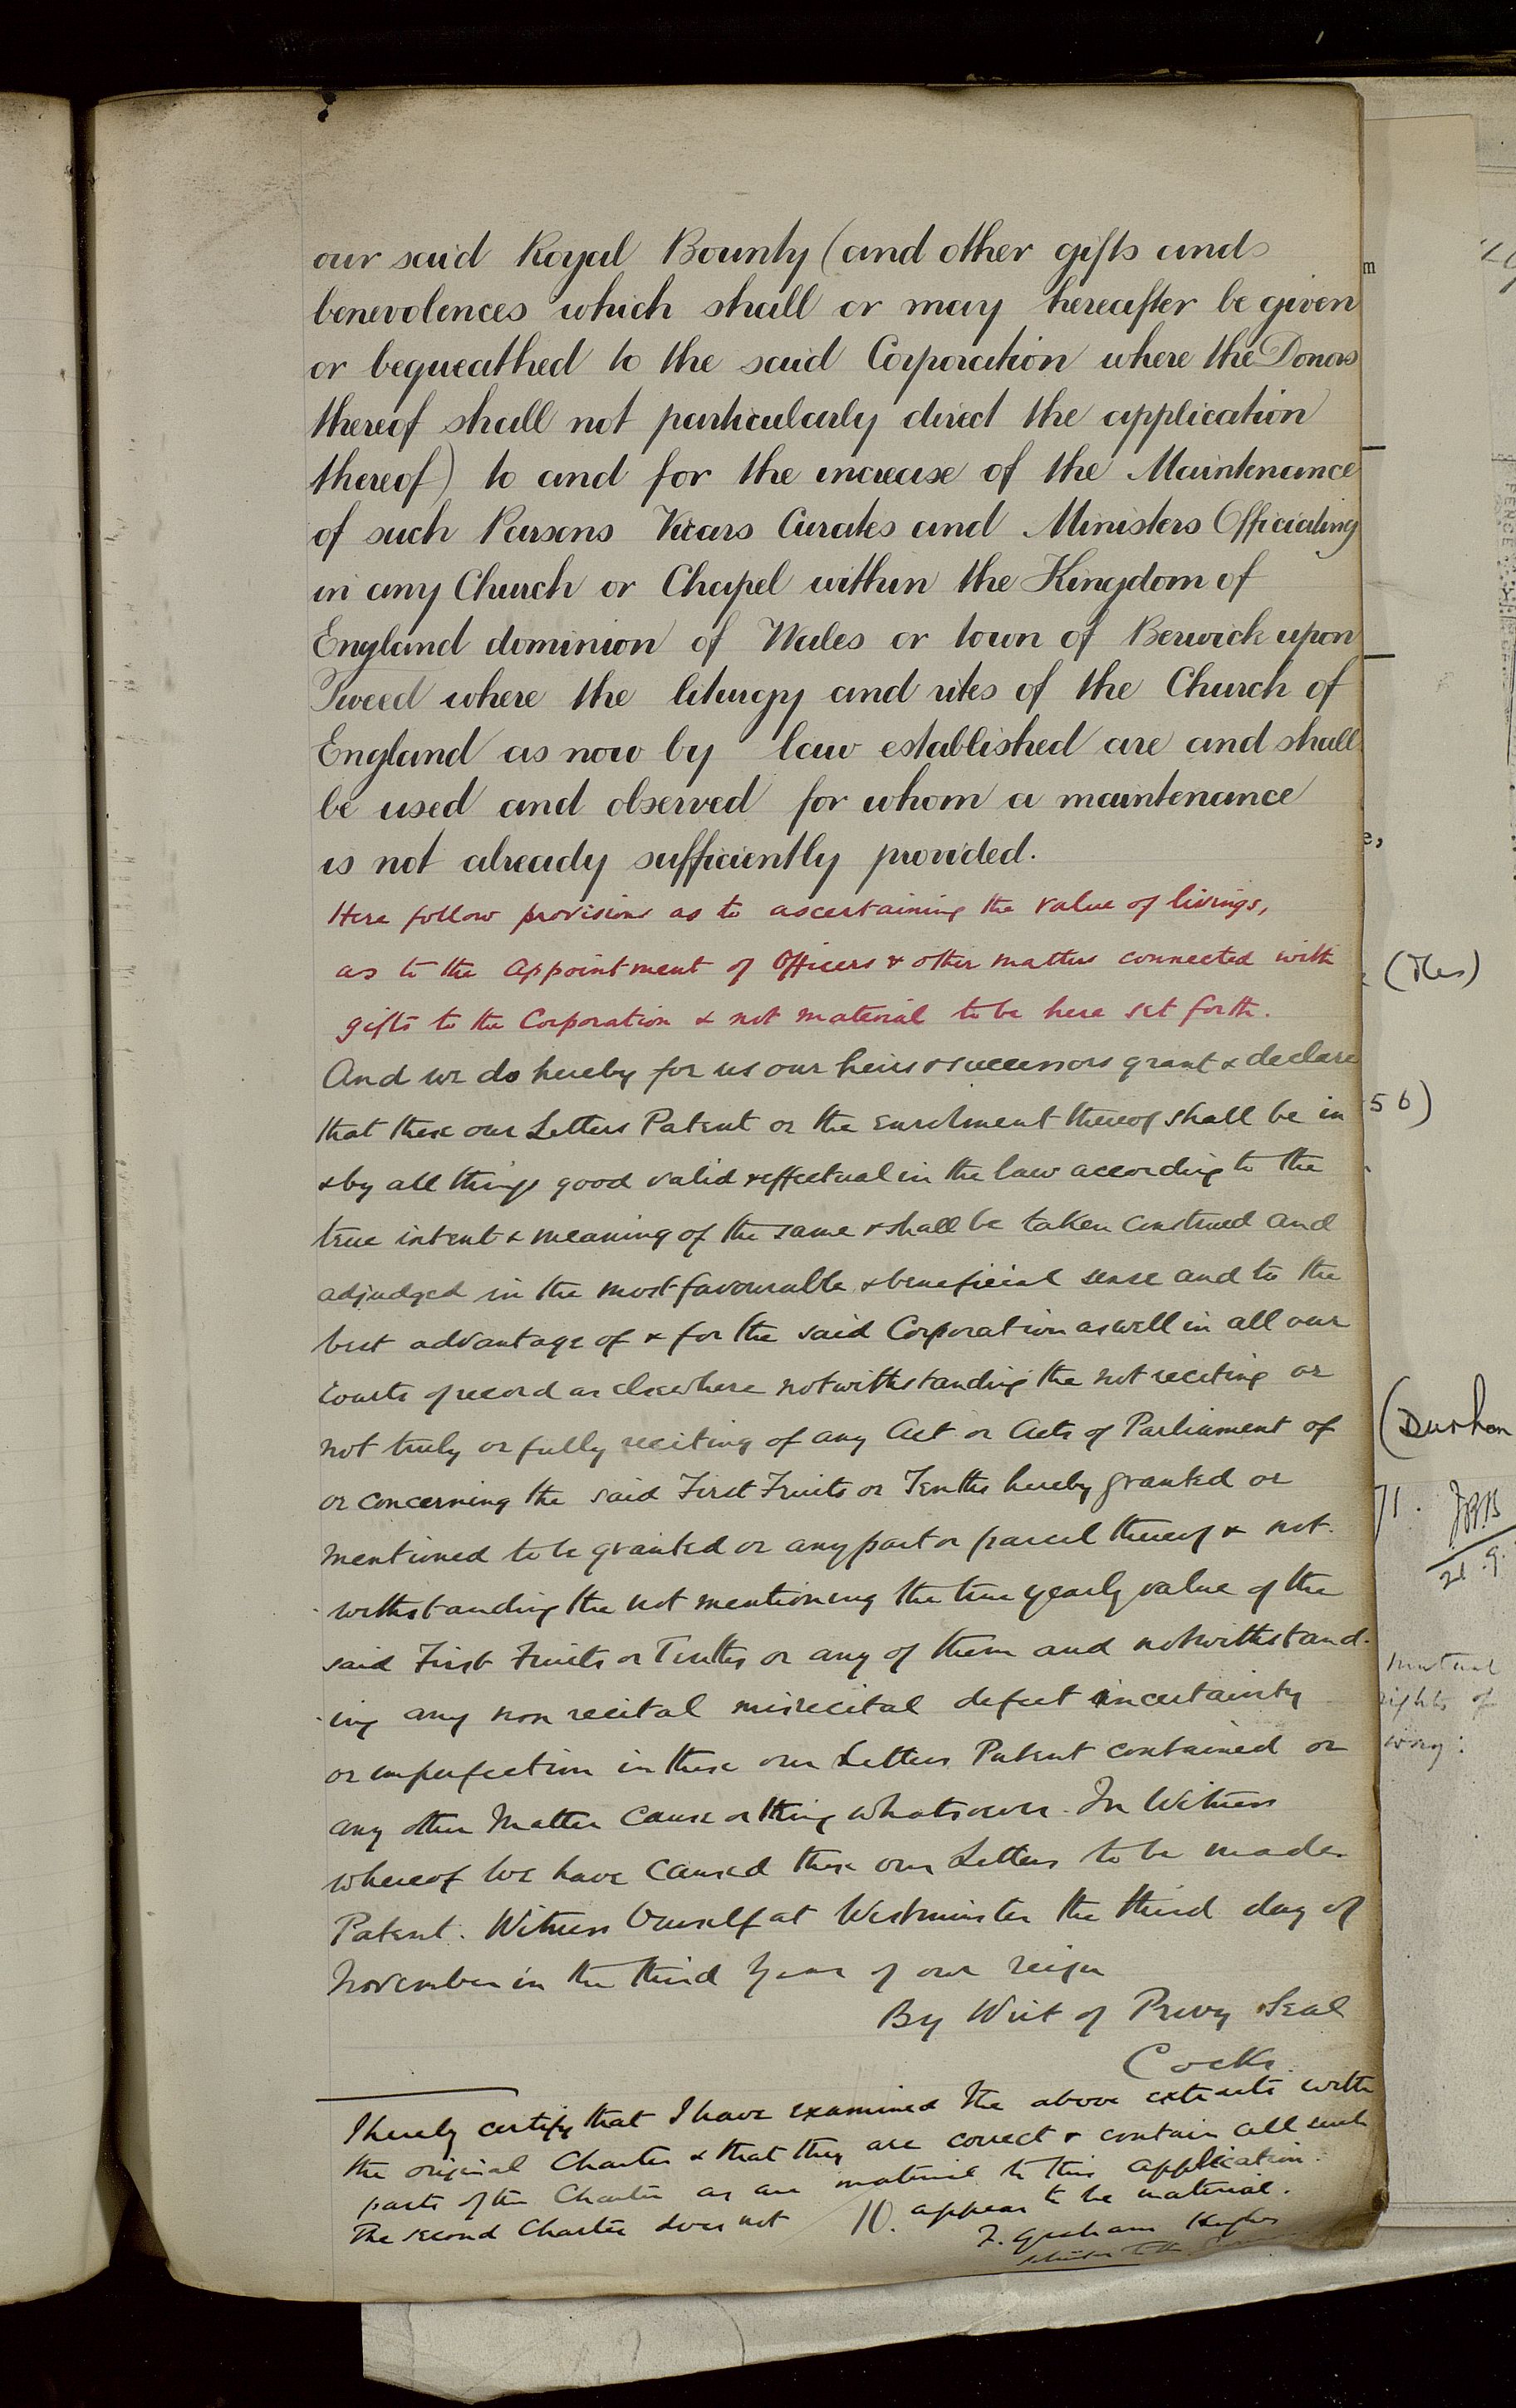 our said Royal Bounty (and other gifts and
benevolences which shall or may hereafter be given
or bequeathed to the said Corporation where the Donors
thereof shall not particularly direct the application
thereof) to and for the increase of the Maintenance
of such Parsons Vicars Curates and Ministers Officiating
in any Church or Chapel within the Kingdom of
England dominion of Wales or town of Berwick upon
Tweed where the liturgy and rites of the Church of
England as now by law established are and shall
be used and observed for whom a maintenance
is not already sufficiently provided.
Here follow provisions as to ascertaining the value of livings,
as to the appointment of Officers & other matters connected with
gifts to the Corporation & not material to be here set forth.
And we do hereby for us our heirs & successors grant & declare
that these our Letters Patent or the Enrolment thereof shall be in
& by all things good valid & effectual in the law according to the
true intent & meaning of the same & shall be taken construed and
adjudged in the most favourable & beneficial sense and to the
best advantage of & for the said Corporation as well in all our
Courts of record as elsewhere notwithstanding the not reciting or
not truly or fully reciting of any Act or Acts of Parliament of
or concerning the said First Fruits or Tenths hereby granted or
mentioned to be granted or any part or parcel thereof & not-
withstanding the not mentioning the true yearly value of the
said First Fruits or Tenths or any of them and notwithstand-
-ing any non recital misrecital defect incertainty
or imperfection in these our Letters Patent contained or
any other Matter Cause or thing whatsoever. In Witness
whereof We have caused these our Letters to be made
Patent. Witness Ourself at Westminster the third day of
November in the third Year of our reign
By Writ of Privy Seal
Cocks.
I hereby certify that I have examined the above extracts with
the original Charter & that they are correct & contain all such
parts of the Charter as are material to this application.
The second Charter does not appear to be material.
10.
F. Graham Hughes
m
e,
56)
(Durham
71.
mutual
rights of
way:
PENCE